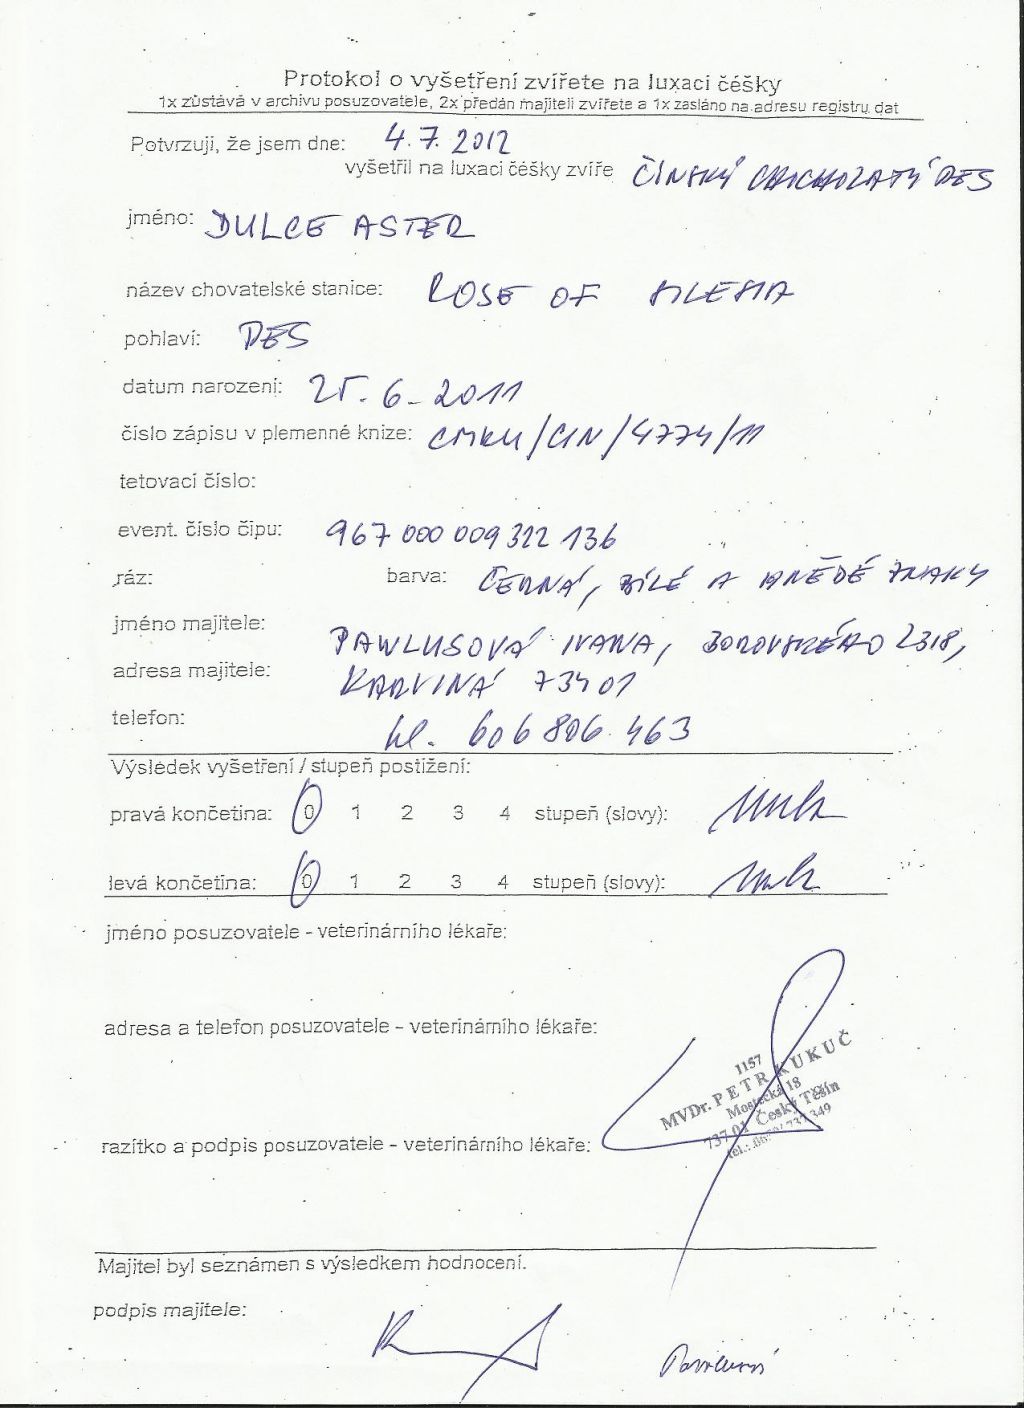 Protokol o vyšetření zvířete na luxaci čéšky
1x zůstává v archivu posuzovatele, 2x předán majiteli zvířete a 1x zasláno na adresu registru dat
Potvrzuji, že jsem dne: 4.7.2012
vyšetřil na luxaci čéšky zvíře ČÍNSKÝ CHOCHOLATÝ PES
jméno: DULCE ASTER
název chovatelské stanice: ROSE OF SILESIA
pohlaví: PES
datum narození: 25.6.2011
číslo zápisu v plemenné knize: CMKU/CHN/4774/11
tetovací číslo:
event. číslo čipu: 967 000 009 322 136
ráz: barva: ČERNÁ, BÍLÉ A HNĚDÉ ZNAKY
jméno majitele: PAWLUSOVÁ IVANA, BOROVSKÉHO 2318,
adresa majitele: KARVINÁ 73401
telefon: tel. 606 806 463
Výsledek vyšetření / stupeň postižení:
pravá končetina: 0 1 2 3 4 stupeň (slovy): nula
levá končetina: 0 1 2 3 4 stupeň (slovy): nula
jméno posuzovatele - veterinárního lékaře:
adresa a telefon posuzovatele - veterinárního lékaře:
1157
MVDr. PETR KUKUČ
Mostecká 18
737 01 Český Těšín
razítko a podpis posuzovatele - veterinárního lékaře:
Majitel byl seznámen s výsledkem hodnocení.
podpis majitele: